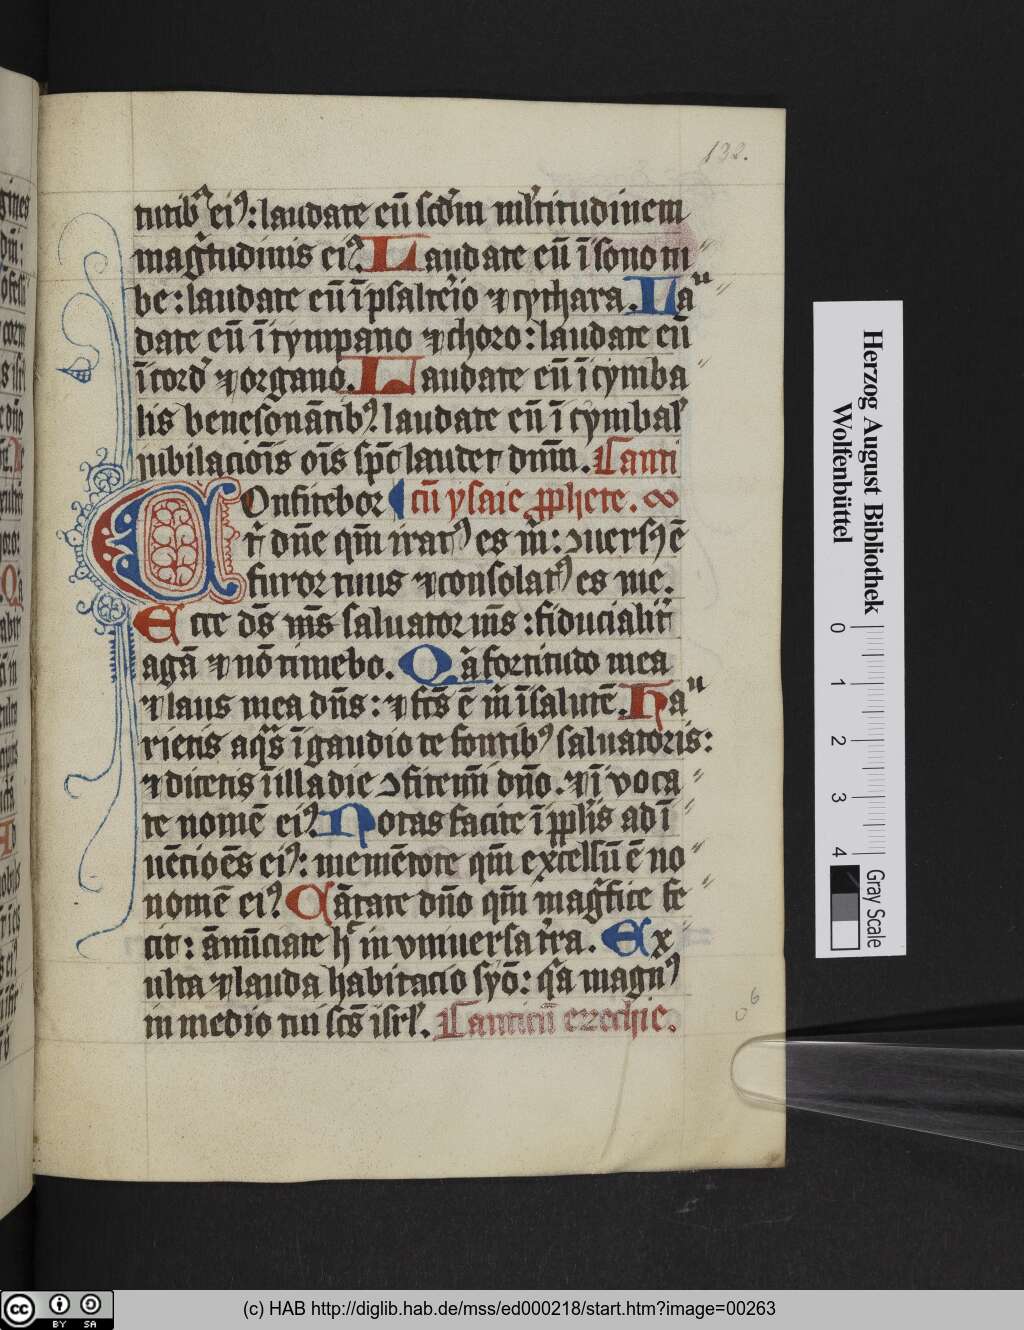 132.
tutibꝰ eiꝰ: laudate eū scd̄m ml̄titudinem
mag̅tudinis eiꝰ. Laudate eū ī sono tu
be: laudate eū ī psalte̅io ⁊ cythara. Lau
date eū ī tympano ⁊ choro: laudate eū
ī cord̄ ⁊ organo. Laudate eū ī cymba
lis benesonātibꝰ laudate eū ī cymbal̄
iubilacioīs oīs sp̄c laudet dn̄m. Canti
Onfitebor cū ysaie ꝓphete.
t̄ dn̄e qm̄ iratꝰ es m̄: ɔuersꝰ ē
furor tuus ⁊ consolatꝰ es me.
Ecce ds̄ ms̄ saluator ms̄: fiducialit̄
agā ⁊ nō timebo. Qa fortitudo mea
⁊ laus mea dn̄s: ⁊ fcs̄ ē m̄ ī salutē. Hau
rietis aqs̄ ī gaudio de fontibꝰ saluatoris:
⁊ dicetis ī illa die ɔfitem̄ dn̄o. ⁊ ī voca
te nomē eiꝰ. Notas facite ī pplīs ad ī
uēcioēs eiꝰ: memētote qm̄ excelsū ē no
nomē eiꝰ. Cātate dn̄o qm̄ mag̅fice fe
cit: ānūciate h̄ in vniuersa tr̄a. Ex
ulta ⁊ lauda habitacio syō: qa magnꝰ
in medio tui scs̄ isrl̄. Canticū ezechie.
6
Herzog August Bibliothek
Wolfenbüttel
0 1 2 3 4
Gray Scale
cc BY SA
(c) HAB http://diglib.hab.de/mss/ed000218/start.htm?image=00263